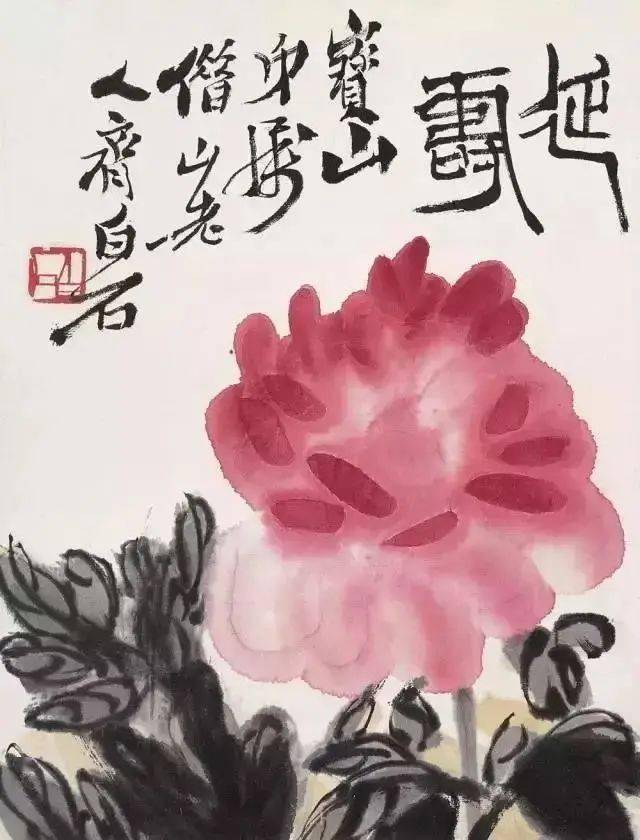 延壽
寶山
弟屬
借山老
人齊白石